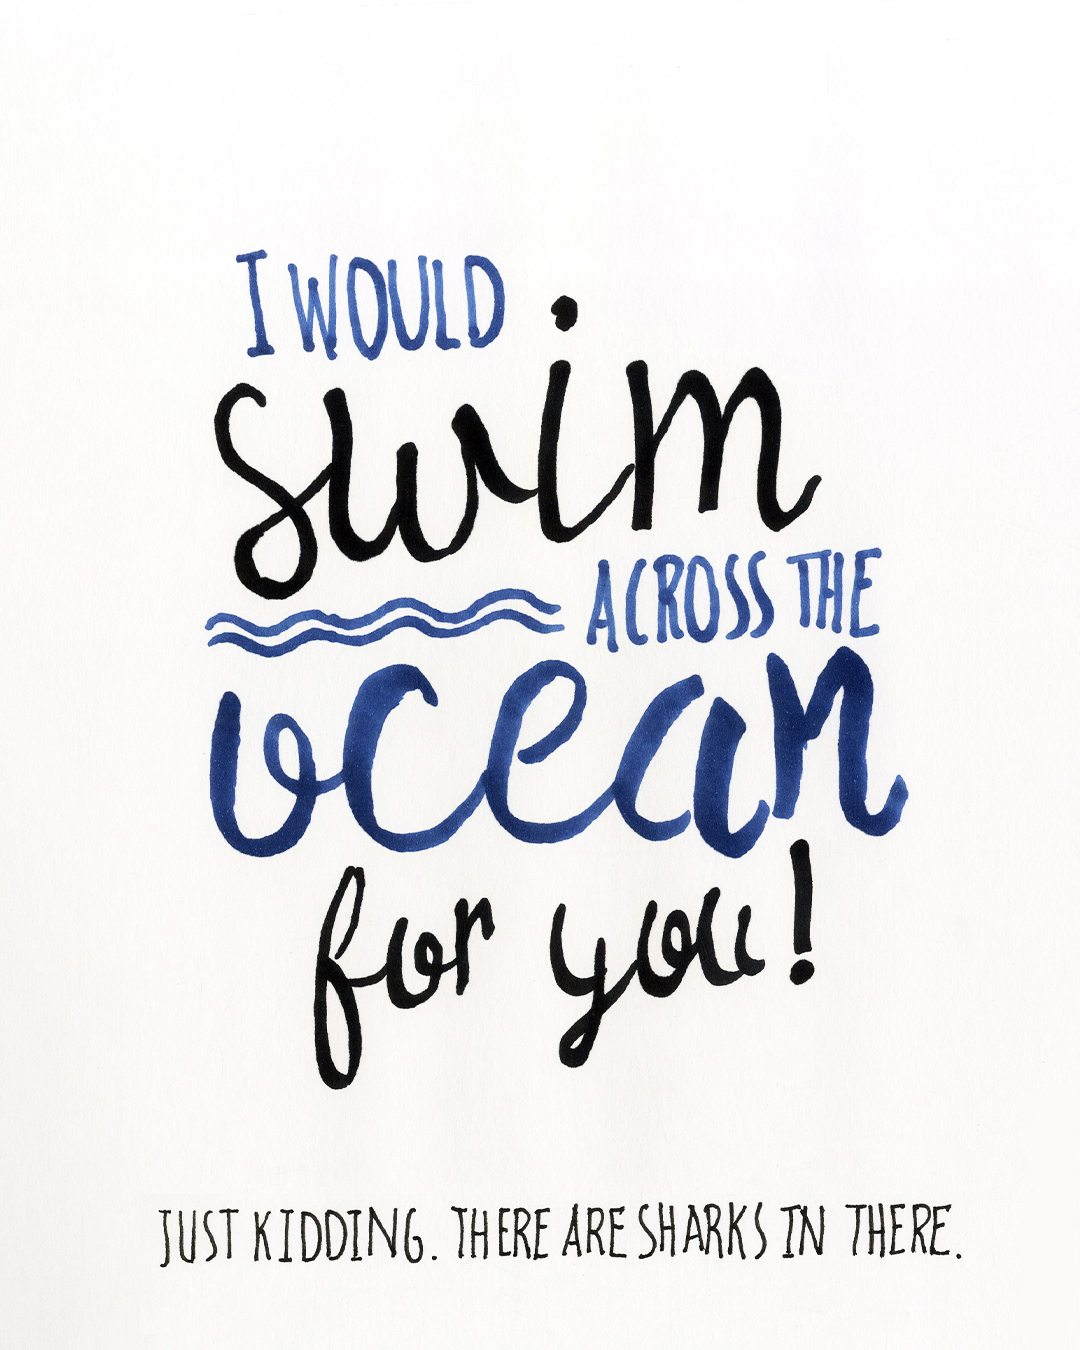 I WOULD
swim
ACROSS THE
ocean
for you!
JUST KIDDING. THERE ARE SHARKS IN THERE.